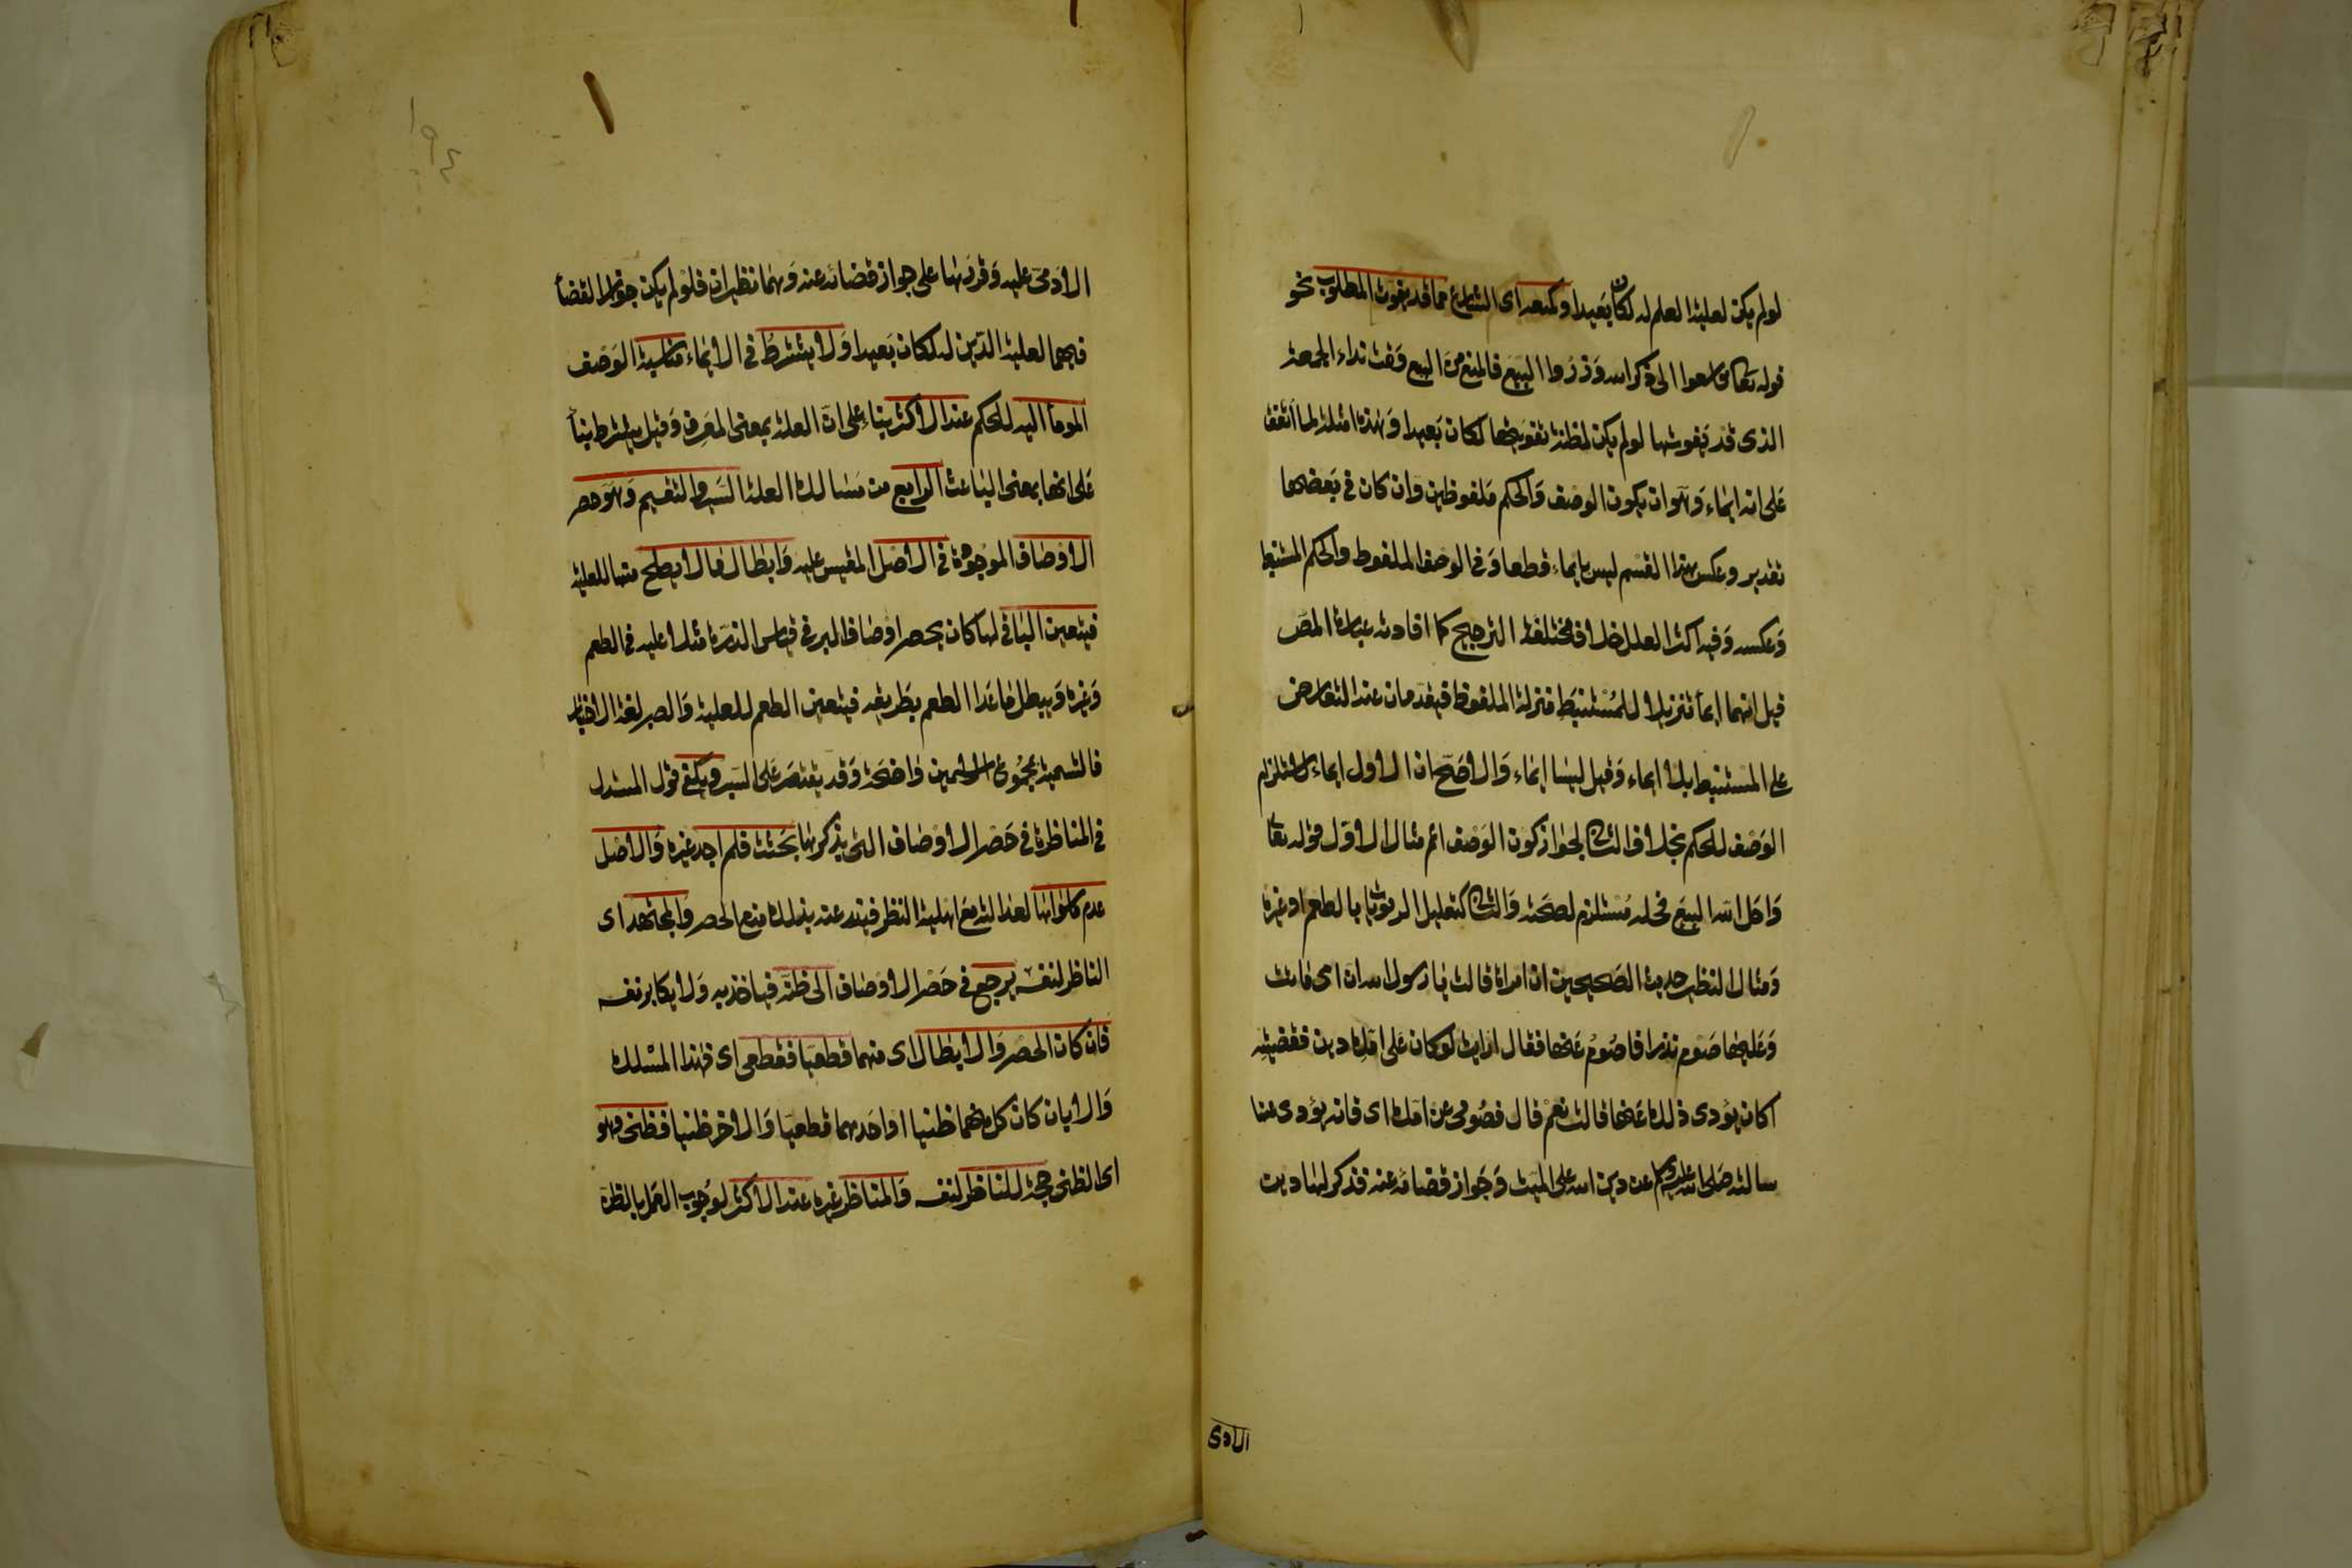 لولم يكن لعلية العلم له لكان بعيدا وكمنعه اى الشارع مما قد يفوت المطلوب نحو
قوله تعالى فاسعوا الى ذكر الله وذروا البيع فالمنع من البيع وقت نداء الجمعة
الذى قد يفوتها لولم يكن لمظنة تفويتها لكان بعيدا وهذه امثلة لما اتفق
على انه ايماء وهو ان يكون الوصف والحكم ملفوظين وان كان فى بعضها
تقدير وعكس هذا القسم ليس بايماء قطعا وفى الوصف الملفوظ والحكم المستنبط
وعكسه وفيه اكثر العلل خلاف مختلفة الترجيح كما افادته عبارة المص
قيل انهما ايما تنزيلا للمستنبط منزلة الملفوظ فيقدمان عند التعارض
على المستنبط بلا ايماء وقيل ليسا ايماء والاصح ان الاول ايماء لاستلزام
الوصف للحكم بخلاف الثانى لجواز كون الوصف اعم مثال الاول قوله تعالى
واحل الله البيع فحله مستلزم لصحته والثانى كتعليل الربويات بالطعم اوغيره
ومثال النظير حديث الصحيحين ان امراة قالت يا رسول الله ان امى ماتت
وعليها صوم نذر افاصوم عنها فقال ارايت لوكان على امك دين فقضيتيه
اكان يؤدى ذلك عنها قالت نعم قال فصومى عن امك اى فانه يؤدى عنها
سالته صلى الله عليه وسلم عن دين الله على الميت وجواز قضائه عنه فذكر لها دين
الادمى
١٩٤
الادمى عليه وقررها على جواز قضائه عنه وهما نظيران فلولم يكن جواز القضأ
فيهما لعلية الدين له لكان بعيدا ولا يشترط فى الايماء مناسبة الوصف
المومأ اليه للحكم عند الاكثر بناء على ان العلة بمعنى المعرف وقيل يشترط بنأ
على انها بمعنى الباعث الرابع من مسالك العلة السبر والتقسيم وهو حصر
الاوصاف الموجودة فى الاصل المقيس عليه وابطال ما لا يصلح منها للعلية
فيتعين الباقى لها كان يحصر اوصاف البر فى قياس الذرة مثلا عليه فى الطعم
وغيره ويبطل ما عدا الطعم بطريقه فيتعين الطعم للعلية والسبر لغة الاختبار
فالتسمية بمجموع الاسمين واضحة وقد يقتصر على السبر ويكفى قول المستدل
فى المناظرة فى حصر الاوصاف التى يذكرها بحثت فلم اجد غيره والاصل
عدم ماسواها لعدالته مع اهلية النظر فيندفع عنه بذلك منع الحصر والمجتهد اى
الناظر لنفسه يرجع فى حصر الاوصاف الى ظنه فياخذ به ولا يكابر نفسه
فان كان الحصر والابطال اى منهما قطعيا فقطعى اى فهذا المسلك
والا بان كان كل منهما ظنيا او احدهما قطعيا والاخر ظنيا فظنى وهو
اى الظنى حجة للناظر لنفسه والمناظر غيره عند الاكثر لوجوب العمل بالظن